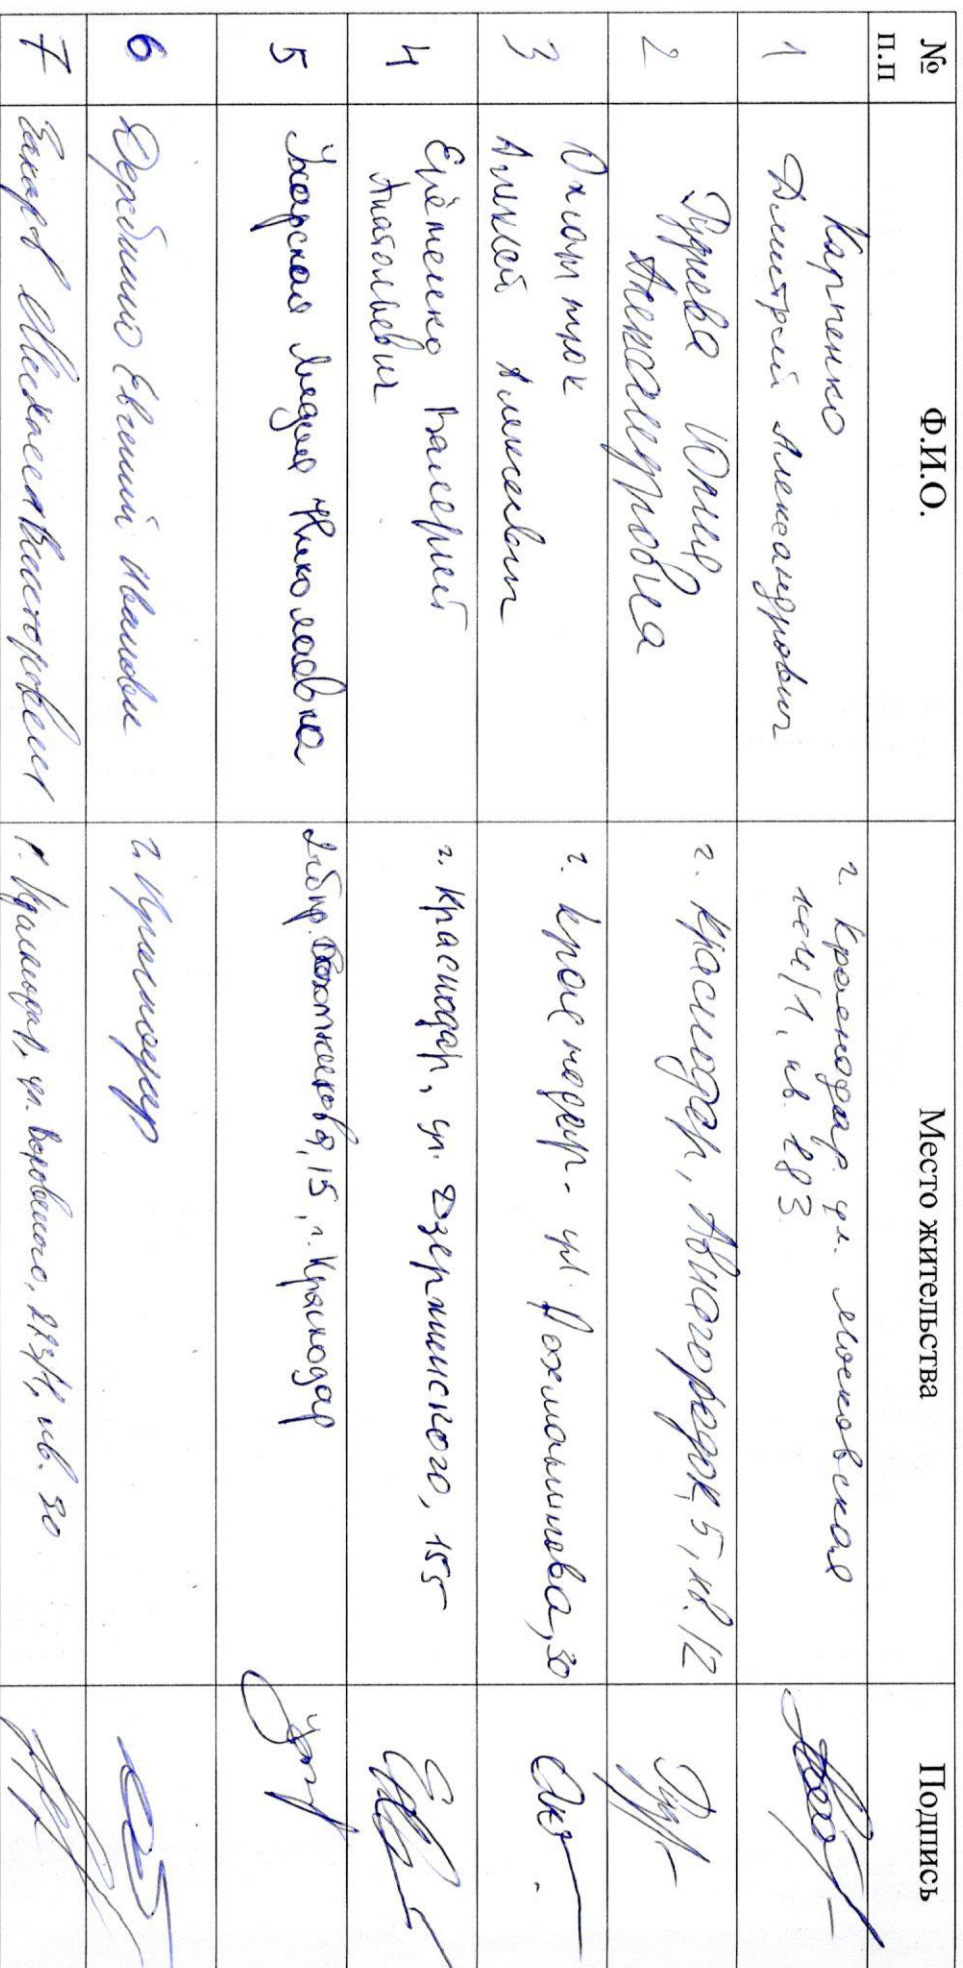 № п.п Ф.И.О. Место жительства Подпись
1 Карпенко
Дмитрий Александрович
г. Краснодар ул. Московская
кв. 283
2 Гуриева Юлия
Александровна
г. Краснодар, Авиагородок, 5, кв. 12
3 Охотник
Алексей Алексеевич
г. Краснодар. ул. Рахманинова, 30
4 Ерёменко Валерий
Анатольевич
г. Краснодар, ул. Дзержинского, 155
5 Ужарская Лидия Николаевна
2-й пр. 15, г. Краснодар
6 Евгений Иванович
г. Краснодар
7 Викторович
г. Краснодар, ул. кв. 30